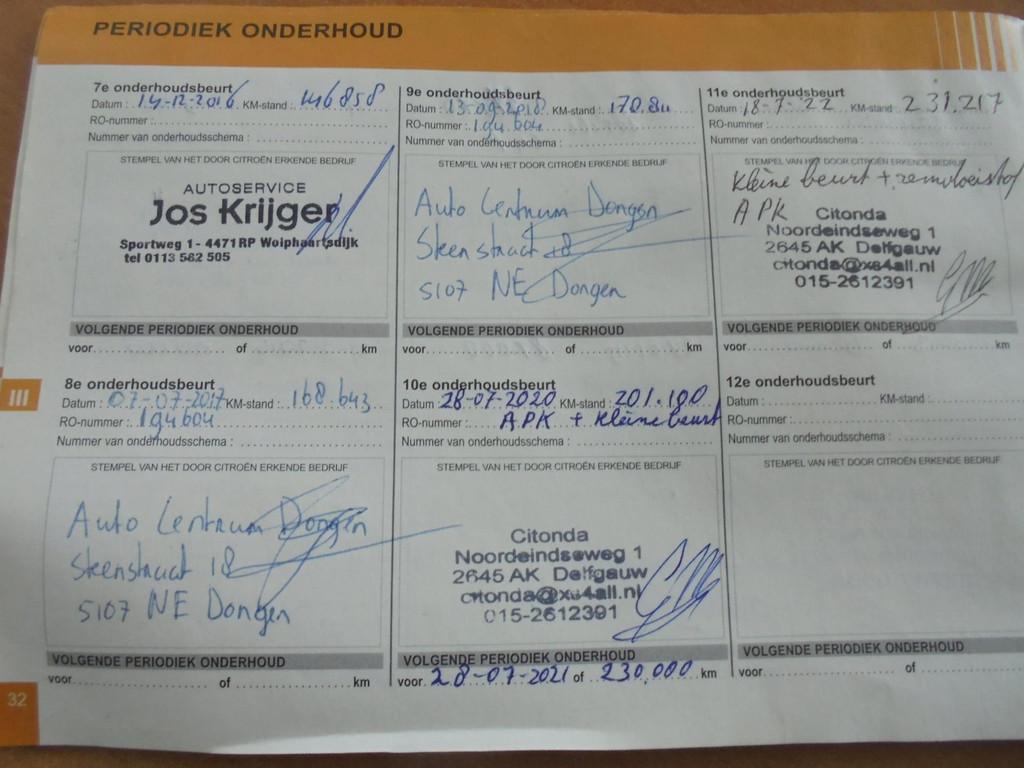 PERIODIEK ONDERHOUD
7e onderhoudsbeurt
Datum : 14-12-2016 KM-stand : 146858
RO-nummer :
Nummer van onderhoudsschema :
STEMPEL VAN HET DOOR CITROËN ERKENDE BEDRIJF
AUTOSERVICE
Jos Krijger
Sportweg 1 - 4471RP Wolphaartsdijk
tel 0113 582 505
VOLGENDE PERIODIEK ONDERHOUD
voor of km
8e onderhoudsbeurt
Datum : 07-07-2017 KM-stand : 168.643
RO-nummer : 194604
Nummer van onderhoudsschema :
STEMPEL VAN HET DOOR CITROËN ERKENDE BEDRIJF
Auto Centrum Dongen
Steenstraat 18
5107 NE Dongen
VOLGENDE PERIODIEK ONDERHOUD
voor of km
9e onderhoudsbeurt
Datum : 13-09-2018 KM-stand :
RO-nummer : 194604
Nummer van onderhoudsschema :
STEMPEL VAN HET DOOR CITROËN ERKENDE BEDRIJF
Auto Centrum Dongen
Steenstraat 18
5107 NE Dongen
VOLGENDE PERIODIEK ONDERHOUD
voor of km
10e onderhoudsbeurt
Datum : 28-07-2020 KM-stand : 201.100
RO-nummer : APK + kleine beurt
Nummer van onderhoudsschema :
STEMPEL VAN HET DOOR CITROËN ERKENDE BEDRIJF
Citonda
Noordeindseweg 1
2645 AK Delfgauw
citonda@xs4all.nl
015-2612391
VOLGENDE PERIODIEK ONDERHOUD
voor 28-07-2021 of 230.000 km
11e onderhoudsbeurt
Datum : 18-7-22 KM-stand : 231.217
RO-nummer :
Nummer van onderhoudsschema :
STEMPEL VAN HET DOOR CITROËN ERKENDE BEDRIJF
kleine beurt + remvloeistof
APK Citonda
Noordeindseweg 1
2645 AK Delfgauw
citonda@xs4all.nl
015-2612391
VOLGENDE PERIODIEK ONDERHOUD
voor of km
12e onderhoudsbeurt
Datum : KM-stand :
RO-nummer :
Nummer van onderhoudsschema :
STEMPEL VAN HET DOOR CITROËN ERKENDE BEDRIJF
VOLGENDE PERIODIEK ONDERHOUD
voor of km
III
32